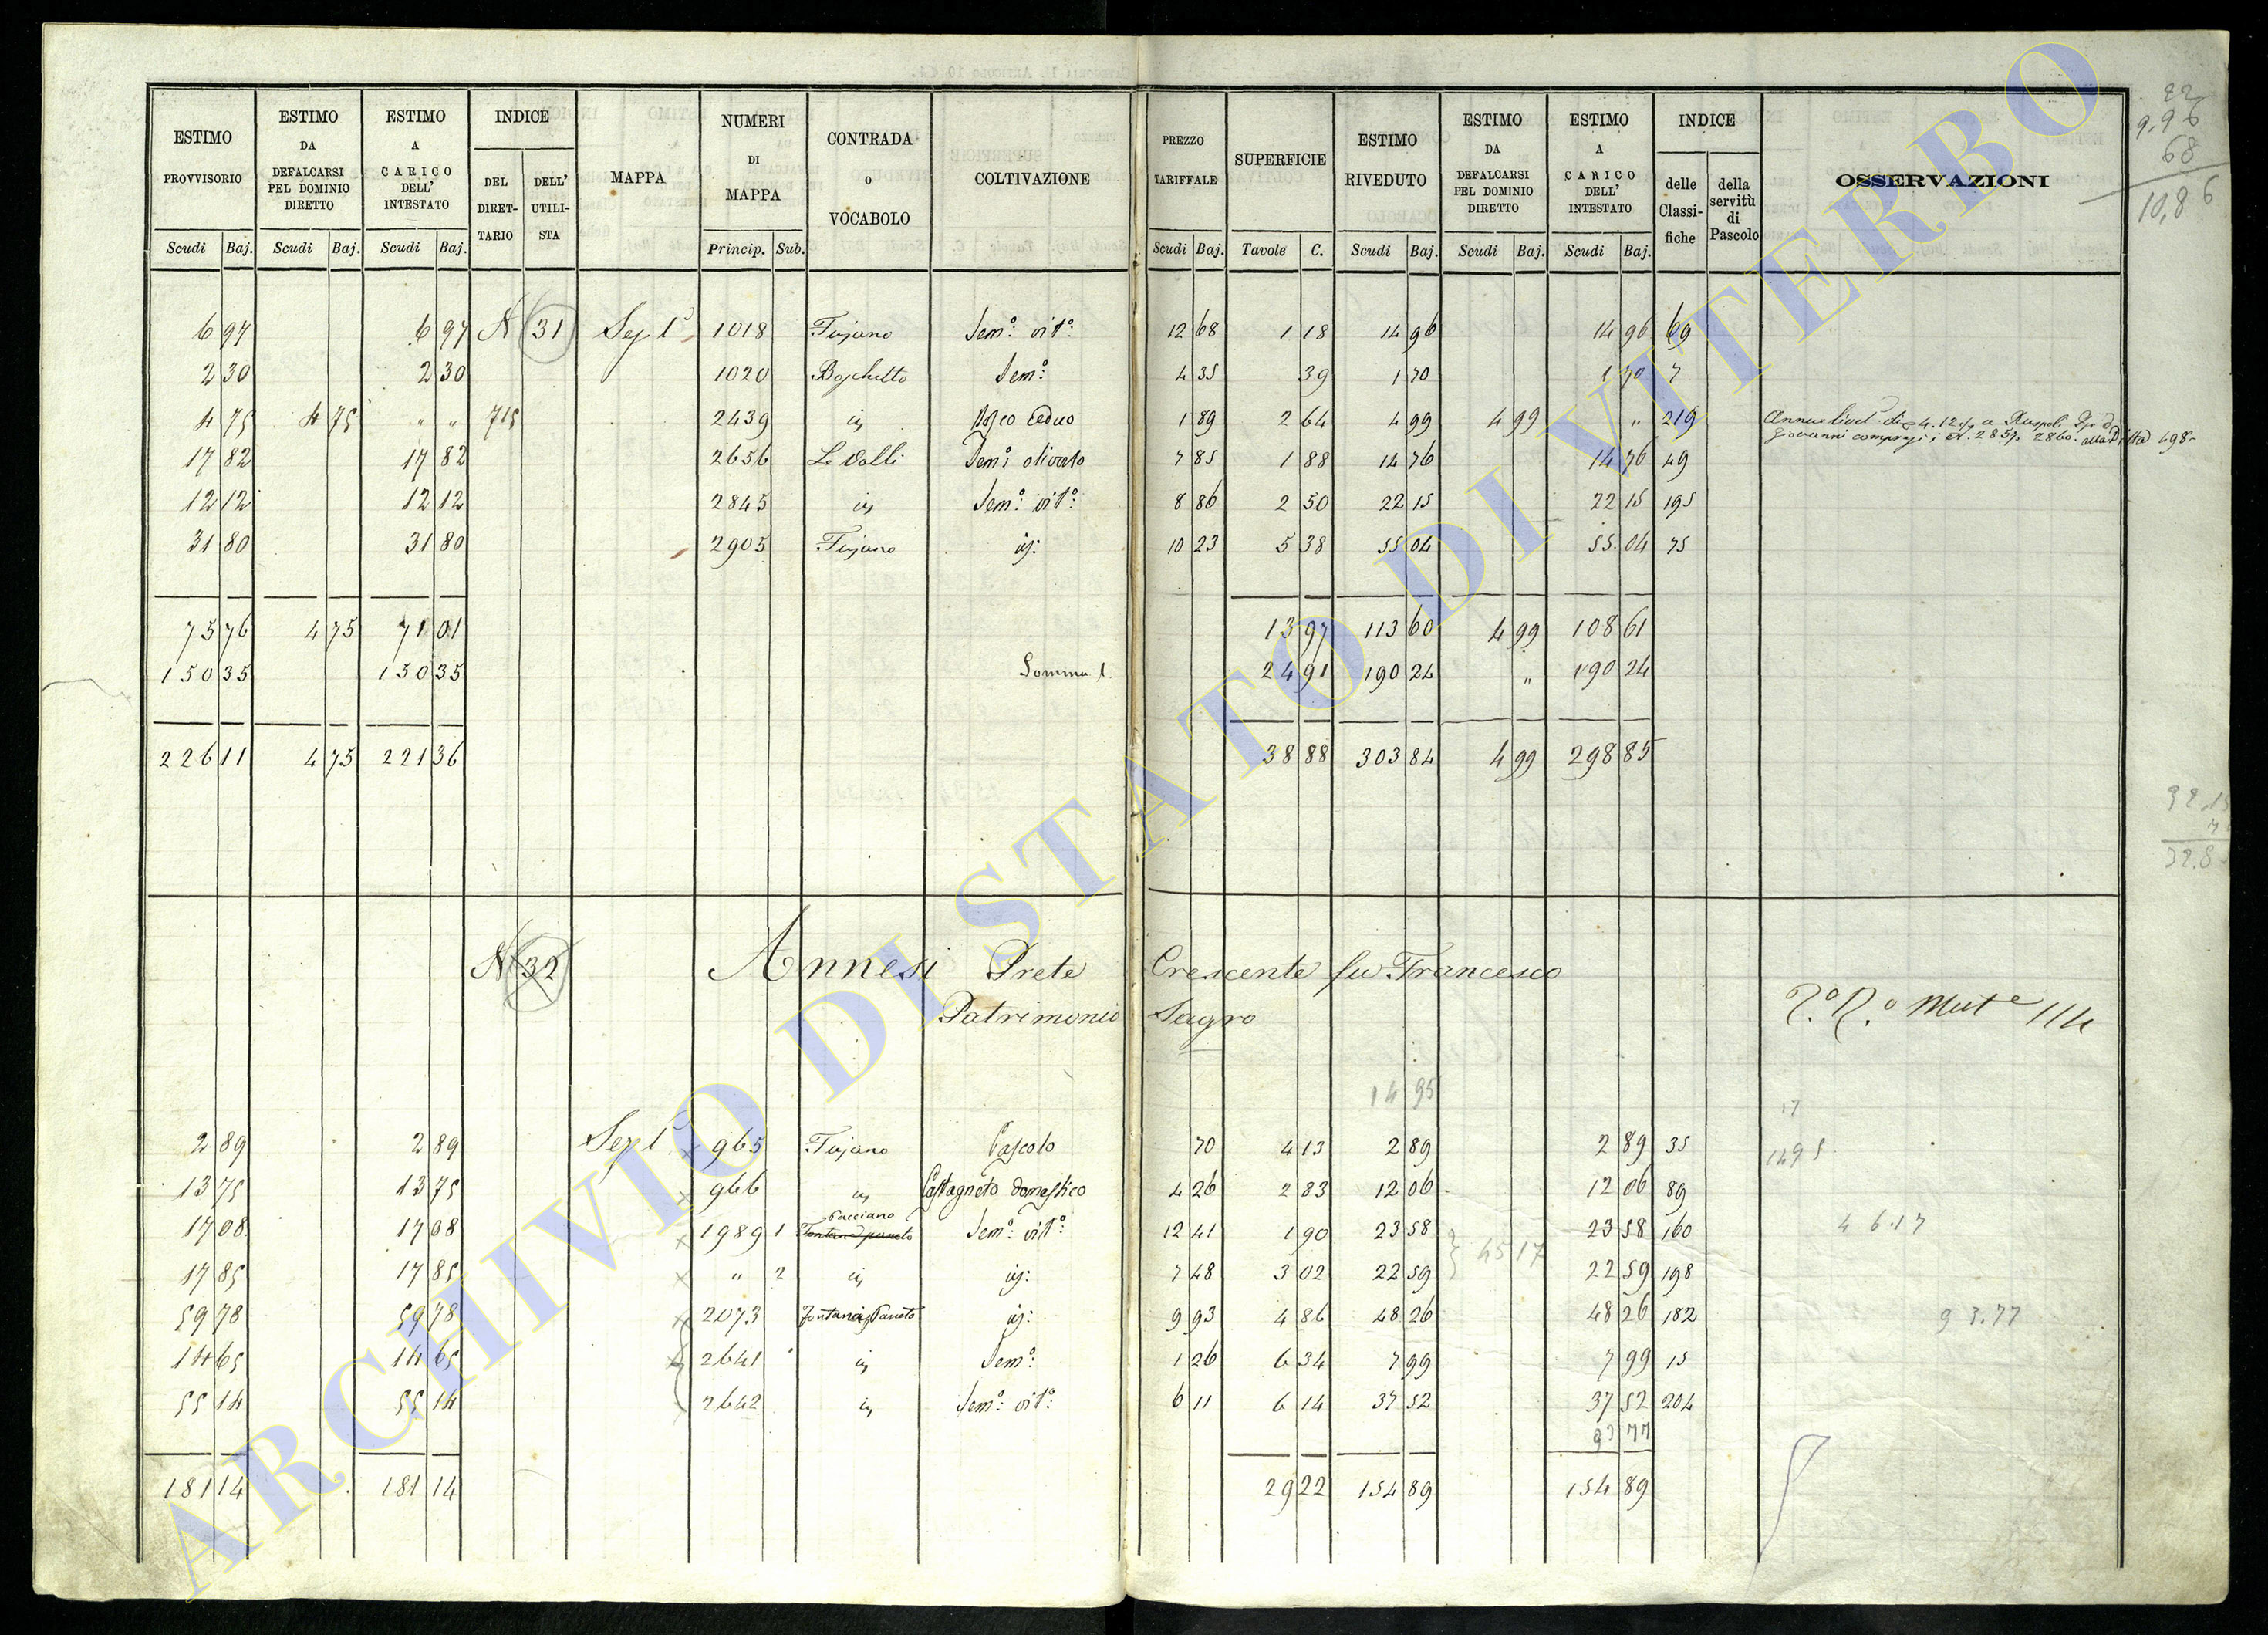 ESTIMO PROVVISORIO Scudi Baj.
ESTIMO DA DEFALCARSI PEL DOMINIO DIRETTO Scudi Baj.
ESTIMO A CARICO DELL' INTESTATO Scudi Baj.
INDICE DEL DIRET-TARIO DELL' UTILI-STA
MAPPA
NUMERI DI MAPPA Princip. Sub.
CONTRADA o VOCABOLO
COLTIVAZIONE
PREZZO TARIFFALE Scudi Baj.
SUPERFICIE Tavole C.
ESTIMO RIVEDUTO Scudi Baj.
ESTIMO DA DEFALCARSI PEL DOMINIO DIRETTO Scudi Baj.
ESTIMO A CARICO DELL' INTESTATO Scudi Baj.
INDICE delle Classi-fiche della servitù di Pascolo
OSSERVAZIONI
9.96
68
10,86
6 97 6 97 N 31 Sez 1ª 1018 Fojano Semo: vito: 12 68 1 18 14 96 14 96 69
2 30 2 30 1020 Boschetto Semo: 4 35 39 1 70 1 70 7
4 75 4 75 " " 715 2439 id Bosco ceduo 1 89 2 64 4 99 4 99 " 219
Giovanni compresi i N. 2857. 2860. alla Ditta 498
17 82 17 82 2656 Le Valli Semo: olivato 7 85 1 88 14 76 14 76 49
12 12 12 12 2845 id Semo: vito: 8 86 2 50 22 15 22 15 195
31 80 31 80 2905 Fojano id: 10 23 5 38 55 04 55 04 75
75 76 4 75 71 01 13 97 113 60 4 99 108 61
150 35 150 35 Somma 24 91 190 24 " 190 24
226 11 4 75 221 36 38 88 303 84 4 99 298 85
N 32 Annesi Prete Crescente fu Francesco
Patrimonio Sagro
114
14 95
2 89 2 89 Sez 1 965 Fojano Pascolo 70 4 13 2 89 2 89 35
13 75 13 75 966 id Castagneto domestico 4 26 2 83 12 06 12 06 89
Pacciano
17 08 17 08 1989 1 Semo: vito: 12 41 1 90 23 58 23 58 160
46.17
17 85 17 85 " 2 id id: 7 48 3 02 22 59 45 17 22 59 198
59 78 59 78 2073 Fontana Paneto id: 9 93 4 86 48 26 48 26 182
93.77
14 65 14 65 2641 id Semo: 1 26 6 34 7 99 7 99 15
55 14 55 14 2642 id Semo: vito: 6 11 6 14 37 52 37 52 204
93 77
181 14 181 14 29 22 154 89 154 89
ARCHIVIO DI STATO DI VITERBO